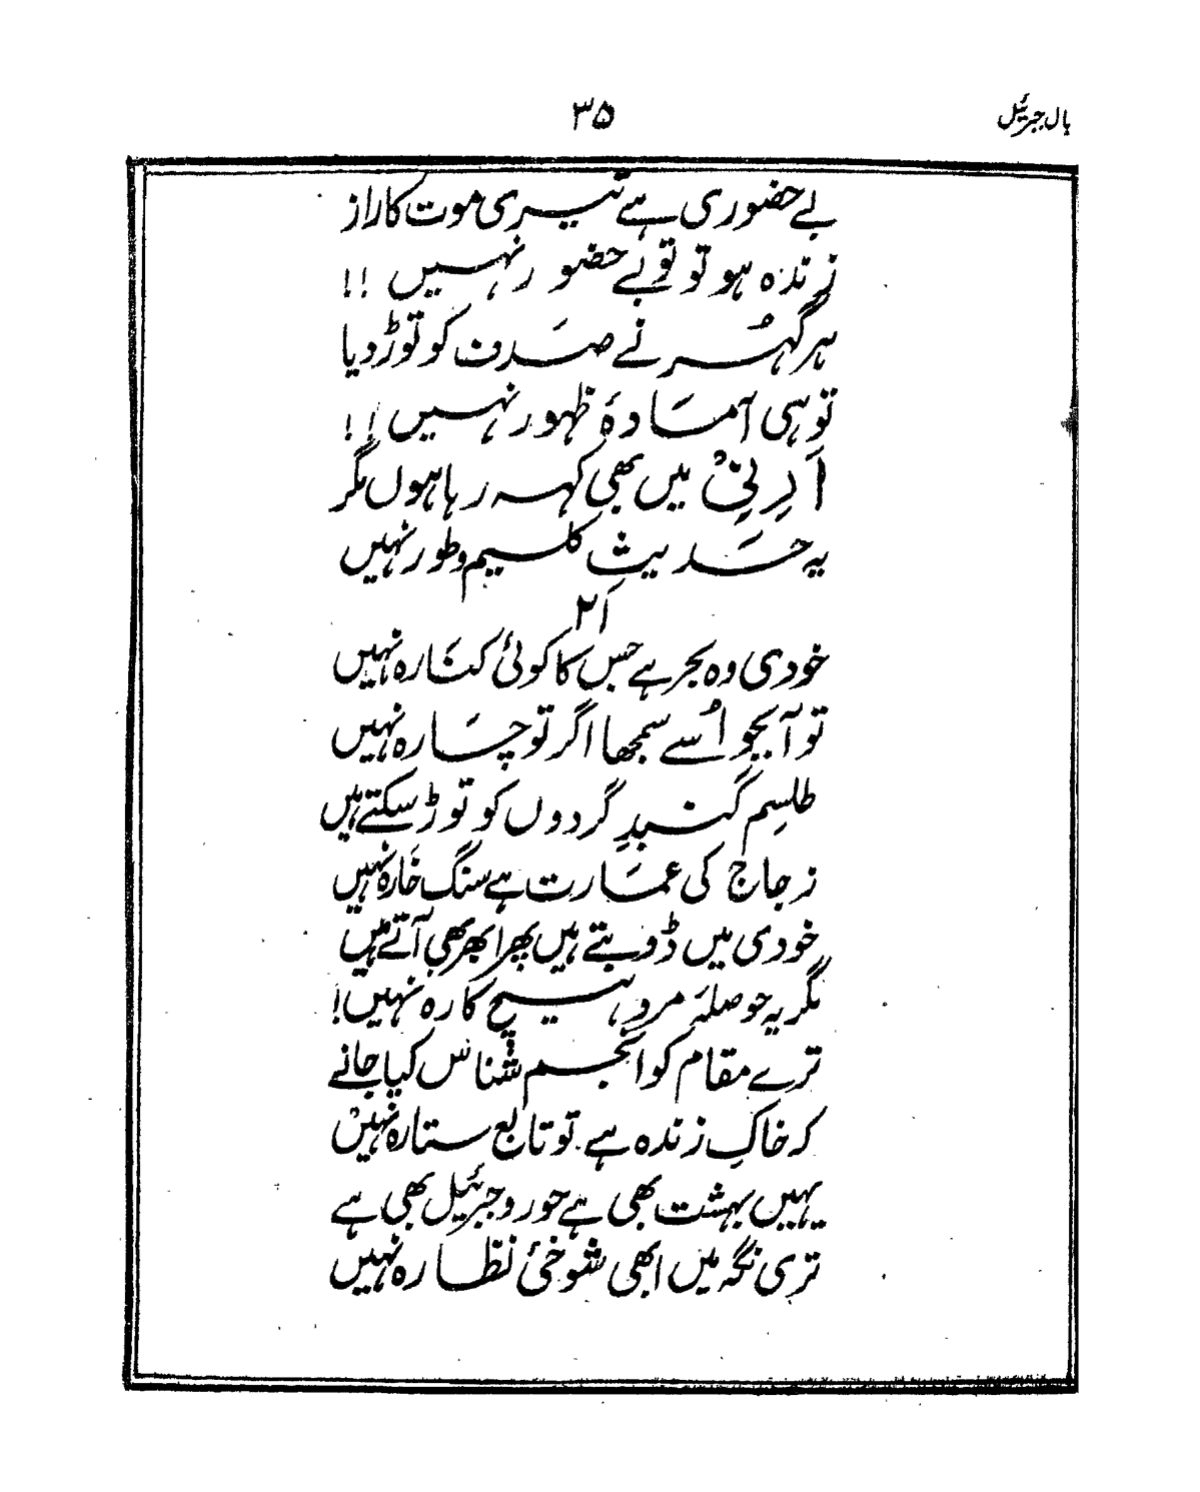 بال جبرئیل
۳۵
بے حضوری ہے تیری موت کا راز
زندہ ہو تو تو بے حضور نہیں !!
ہر گہُر نے صَدف کو توڑ دیا
تو ہی آمَادۂ ظہور نہیں !!
اَرِنِیْ میں بھی کہہ رہا ہوں مگر
یہ حَدیثِ کلیم و طور نہیں
۲۱
خودی وہ بحر ہے جس کا کوئی کنَارہ نہیں
تو آبجو اُسے سمجھا اگر تو چَارہ نہیں
طلسِم گنبدِ گردوں کو توڑ سکتے ہیں
زجاج کی عمَارت ہے سنگ خَارہ نہیں
خودی میں ڈوبتے ہیں پھر ابھر بھی آتے ہیں
مگر یہ حوصلۂ مردِ ہیچ کارہ نہیں!
ترے مقام کو انجم شناس کیا جانے
کہ خاکِ زندہ ہے۔ تو تابع ستارہ نہیں
یہیں بہشت بھی ہے حور و جبرئیل بھی ہے
تری نگہ میں ابھی شوخئ نظارہ نہیں